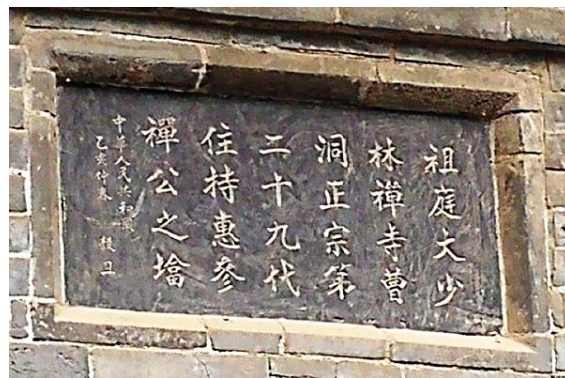 祖庭大少
林禪寺曹
洞正宗第
二十九代
住持惠参
禪公之墖
中华人民共和國
乙亥仲春 穀旦